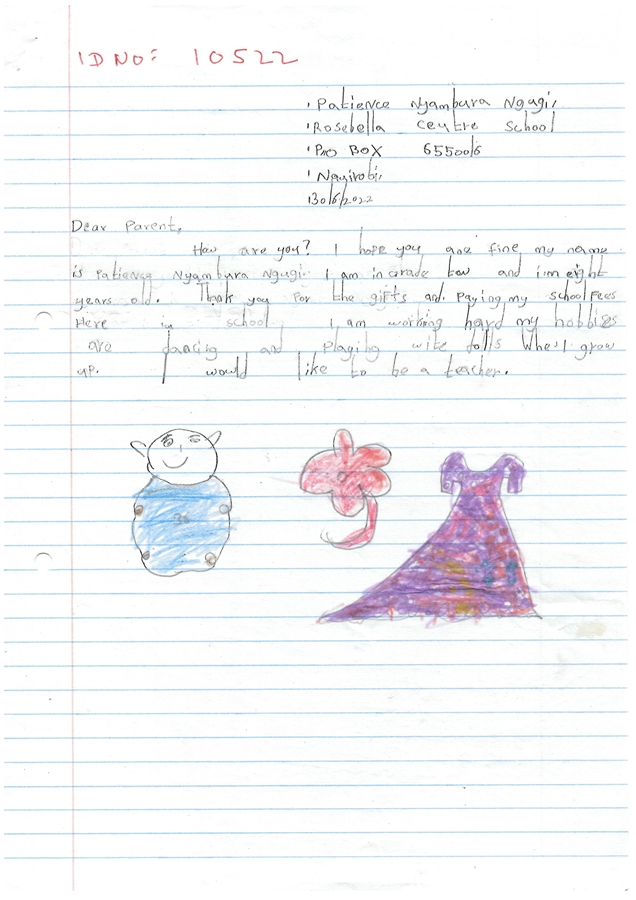 IDNO: 10522
Patience Nyambura Ngugi,
Rosebella Centre School
P.O BOX 6550016
Nayirobi,
130/6/2022
Dear Parent,
How are you? I hope you are fine my name
is Patience Nyambura Ngugi. I am in Grade tow and i'm eight
years old. Thank you for the gifts and paying my school fees
Here in school. I am working hard my hobbies
are dancing and Playing wite dolls When I grow
up. I would like to be a teacher.
36